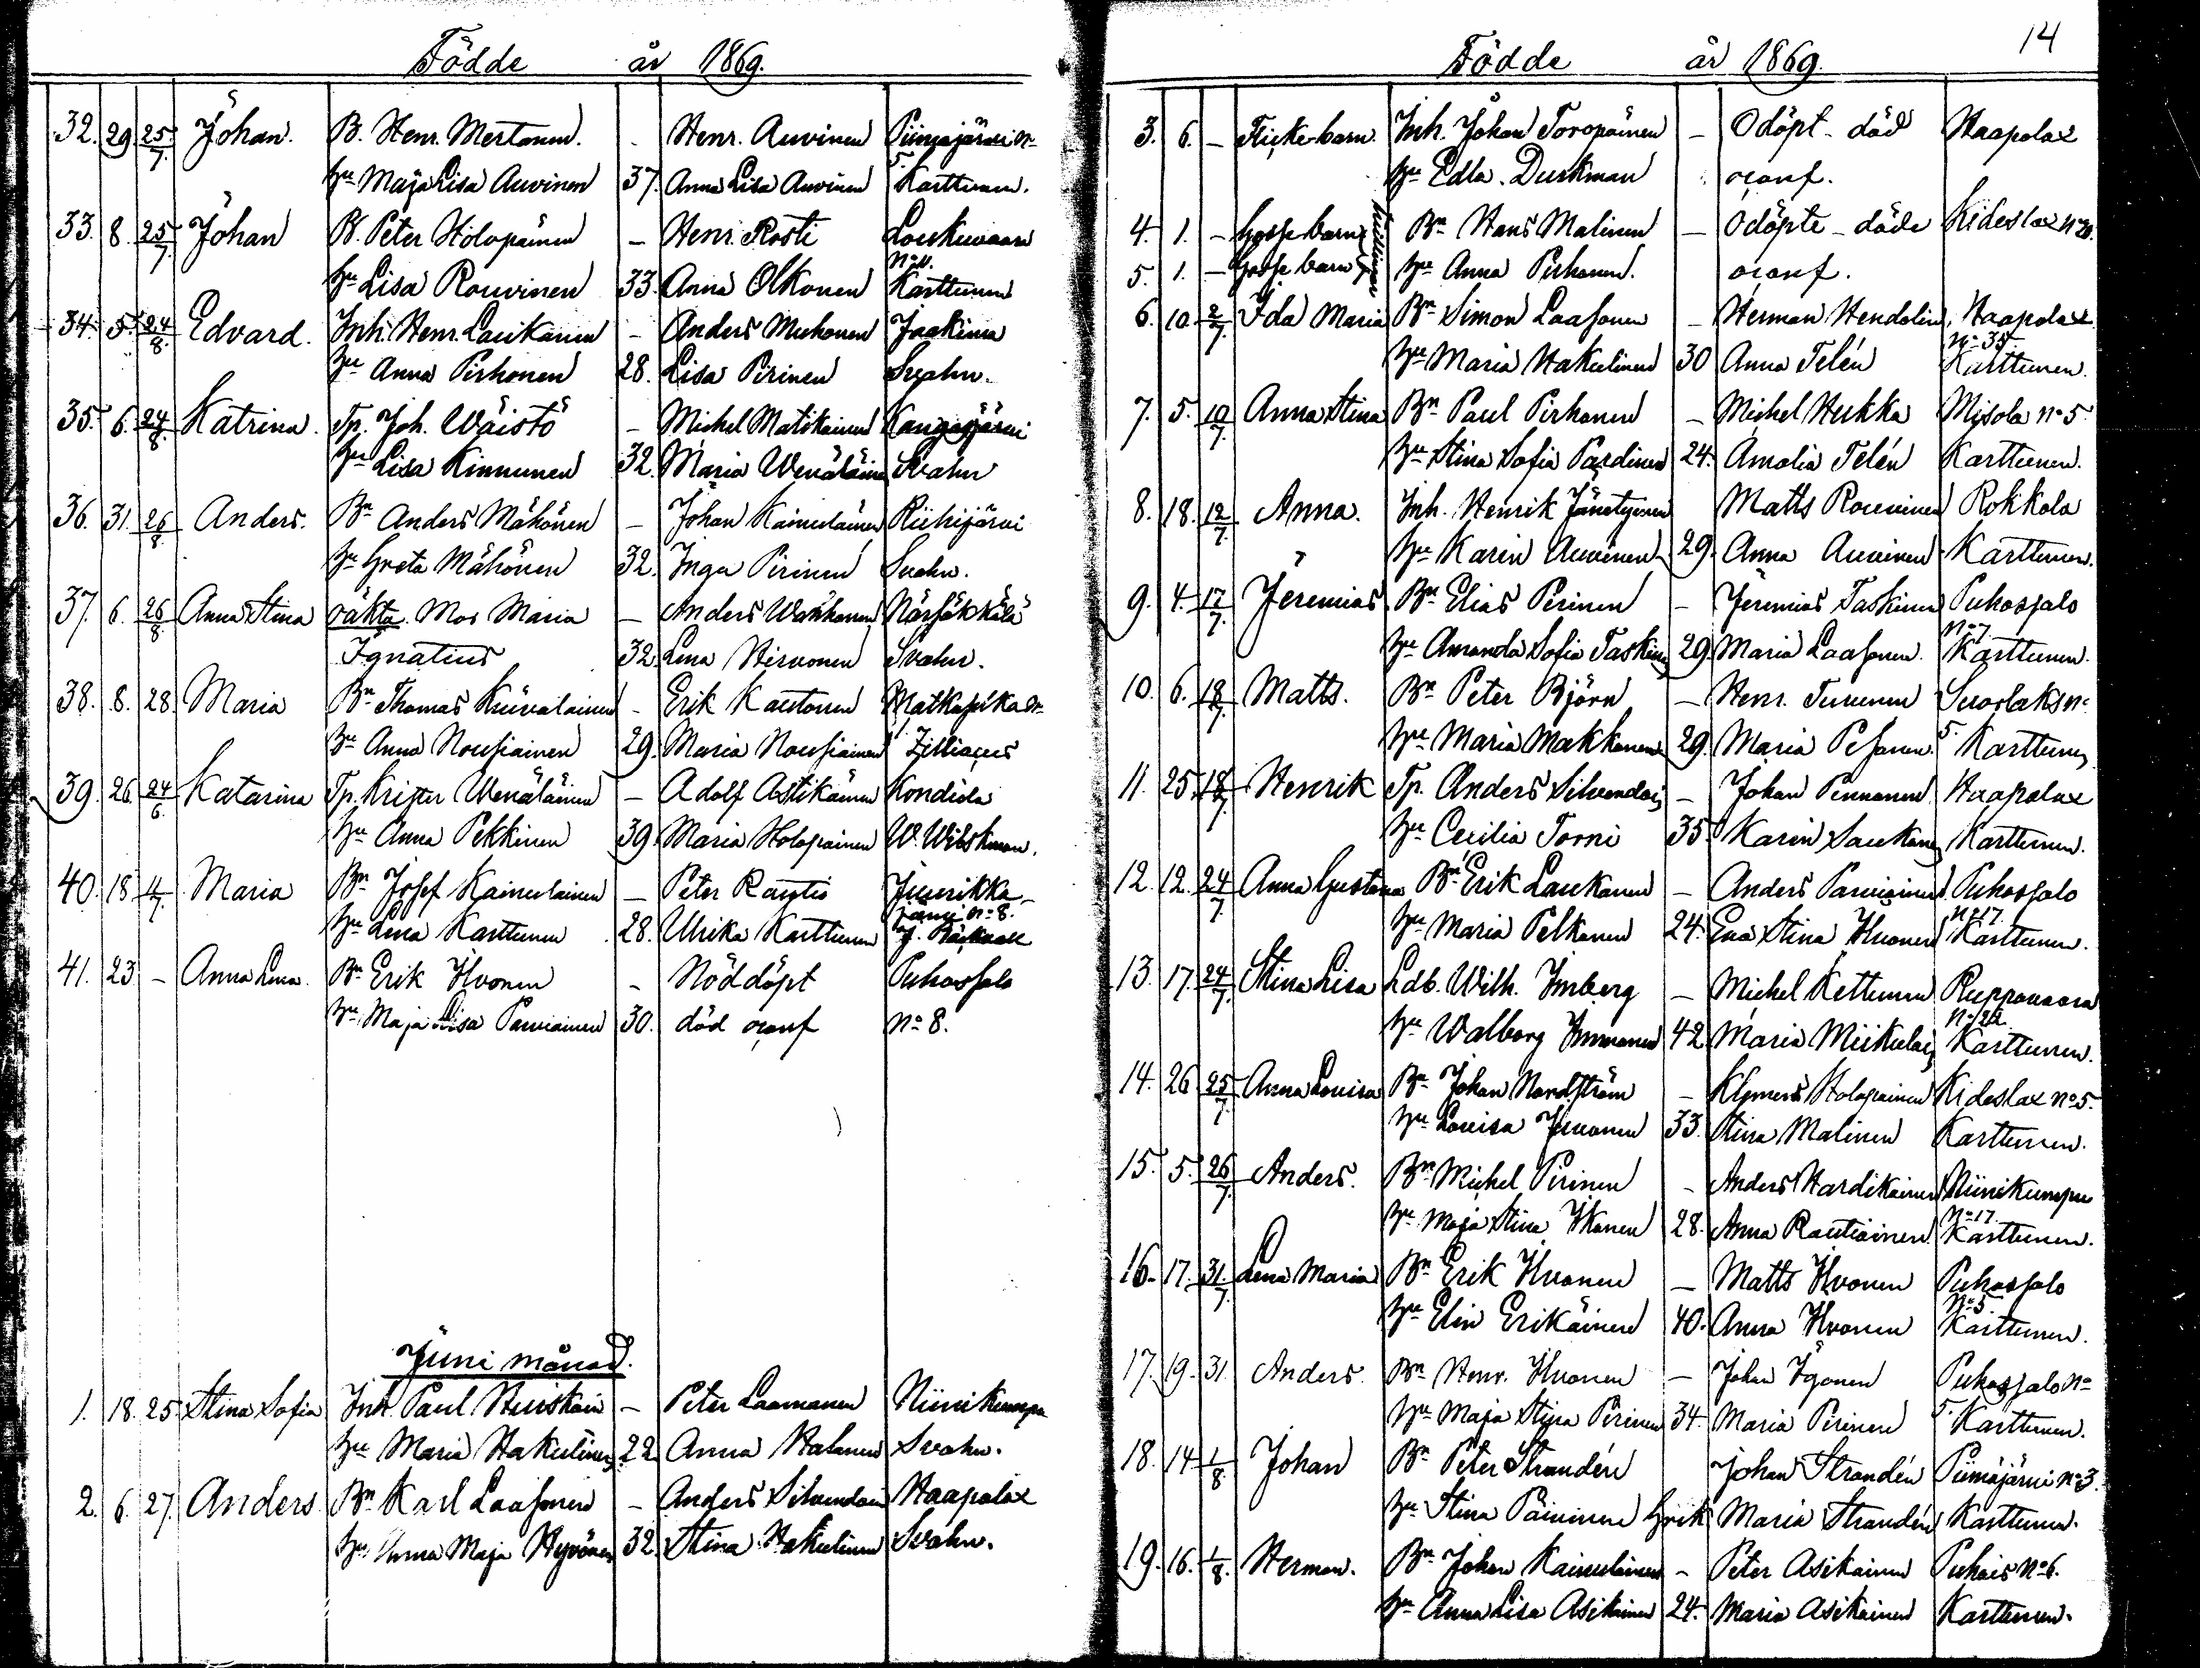 Födde år 1869.
32. 29. 25/7. Johan. B. Henr. Mertanen. - Henr. Auvinen Piimäjärvi No
hu Maja Lisa Auvinen 37. Anna Lisa Auvinen 5. Karttunen.
33. 8. 25/7. Johan B. Peter Holopainen - Henr. Rosti Louhivaara
No 11.
hu Lisa Rouvinen 33. Anna Olkonen Karttunen
34. 5. 24/8. Edvard. Inh. Henr. Laukanen - Anders Muhonen Jaakima
hu Anna Pirhonen 28. Lisa Pirinen Svahn.
35. 6. 24/8. Katrina. Tp. Joh. Wäistö - Michel Matikainen Kangasjärvi
hu Lisa Kinnunen 32. Maria Wenäläinen Svahn
36. 31. 26/8. Anders. Bn Anders Mähönen - Johan Kainulainen Riihijärvi
hu Greta Mähönen 32. Inga Pirinen Svahn.
37. 6. 26/8. Anna Stina oäkta. Mor Maria - Anders Wänkänen Närsäkkälä
Ignatius 32. Lena Hirvonen Svahn.
38. 8. 28. Maria Bn Thomas Kiiveläinen - Erik Kautonen Matkaselkä No
hu Anna Nousiainen 29. Maria Nousiainen 1 Zilliacus
39. 26. 24/6. Katarina Tp. Krister Wenäläinen - Adolf Astikainen Kondiola
hu Anna Pekkinen 39. Maria Holopainen W. Wibskman.
40. 18. 4/7. Maria Bn Josef Kainulainen - Peter Rautio Juurikka-
järvi No 8.
hu Lena Karttunen 28. Ulrika Karttunen J. Bäckvall
41. 23 - Anna Lena. Bn Erik Ikonen - Nöddöpt Puhossalo
hu Maja Lisa Parviainen 30. död oconf No 8.
Juni månad.
1. 18. 25. Stina Sofia Inh. Paul Heiskain - Peter Laamanen Niinikumpu
hu Maria Hakulinen 22. Anna Halonen Svahn.
2. 6. 27. Anders. Bn Karl Laasonen - Anders Silvendoin Haapalax
hu Anna Maja Hyvönen 32. Stina Hakulinen Svahn.
14
Födde år 1869.
3. 6. - Flickebarn. Inh. Johan Toropainen - Odöpt - död Haapalax
hu Edla Duskman oconf.
4. 1. - Gossebarn tvillingar Bn Hans Malinen - Odöpte - döde Kideslax No 20.
5. 1. - Gossebarn hu Anna Pirhonen. oconf.
6. 10. 2/7. Ida Maria Bn Simon Laasonen - Herman Hendolin Haapalax
No 35.
hu Maria Hakulinen 30 Anna Telén Karttunen.
7. 5. 10/7. Anna Stina Bn Paul Pirhonen - Michel Hukka Misola No 5
hu Stina Sofia Pardinen 24. Amalia Telén Karttunen.
8. 18. 12/7. Anna. Inh. Henrik Jänetyinen Matts Rouvinen Rokkola
hu Karin Auvinen 29. Anna Auvinen Karttunen.
9. 4. 17/7. Jeremias Bn Elias Pirinen - Jeremias Taskinen Puhossalo
No 7.
hu Amanda Sofia Taskinen 29. Maria Laasonen. Karttunen.
10. 6. 18/7. Matts. Bn Peter Björn - Henr. Turunen Suorlaks No
hu Maria Makkonen 29. Maria Pesonen 5. Karttunen
11. 25. 18/7. Henrik Tp. Anders Silvendoin - Johan Pennanen Haapalax
hu Cecilia Torni 35. Karin Saukonen Karttunen.
12. 12. 24/7. Anna Gustava Bn Erik Laukanen - Anders Parviainen Puhossalo
No 17.
hu Maria Pelkonen 24. Eva Stina Ikonen Karttunen.
13. 17. 24/7. Stina Lisa Ldb. Wilh. Imberg - Michel Kettunen Ruppovaara
No 22.
hu Walborg Immonen 42. Maria Miikulain Karttunen.
14. 26 25/7. Anna Lovisa Bn Johan Nordström - Klemens Holopainen Kideslax No 5.
hu Lovisa Juvonen 33. Stina Malinen Karttunen.
15. 5. 26/7. Anders. Bn Michel Pirinen - Anders Hardikainen Niinikumpu
No 17
hu Maja Stina Ikonen 28. Anna Rautiainen Karttunen.
16. 17. 31/7. Lena Maria Bn Erik Ikonen - Matts Ikonen Puhossalo
No 5.
hu Elin Erikäinen 40. Anna Ikonen Karttunen.
17. 19. 31. Anders. Bn Henr. Ikonen - Johan Igonen Puhossalo No
hu Maja Stina Pirinen 34. Maria Pirinen 5. Karttunen.
18. 14 1/8. Johan Bn Peter Strandén Johan Strandén Piimäjärvi No 3.
hu Stina Päivinen Maria Strandén Karttunen.
19. 16. 1/8. Herman. Bn Johan Kainulainen - Peter Asikainen Puhois No 6.
hu Anna Lisa Asikainen 24. Maria Asikainen Karttunen.